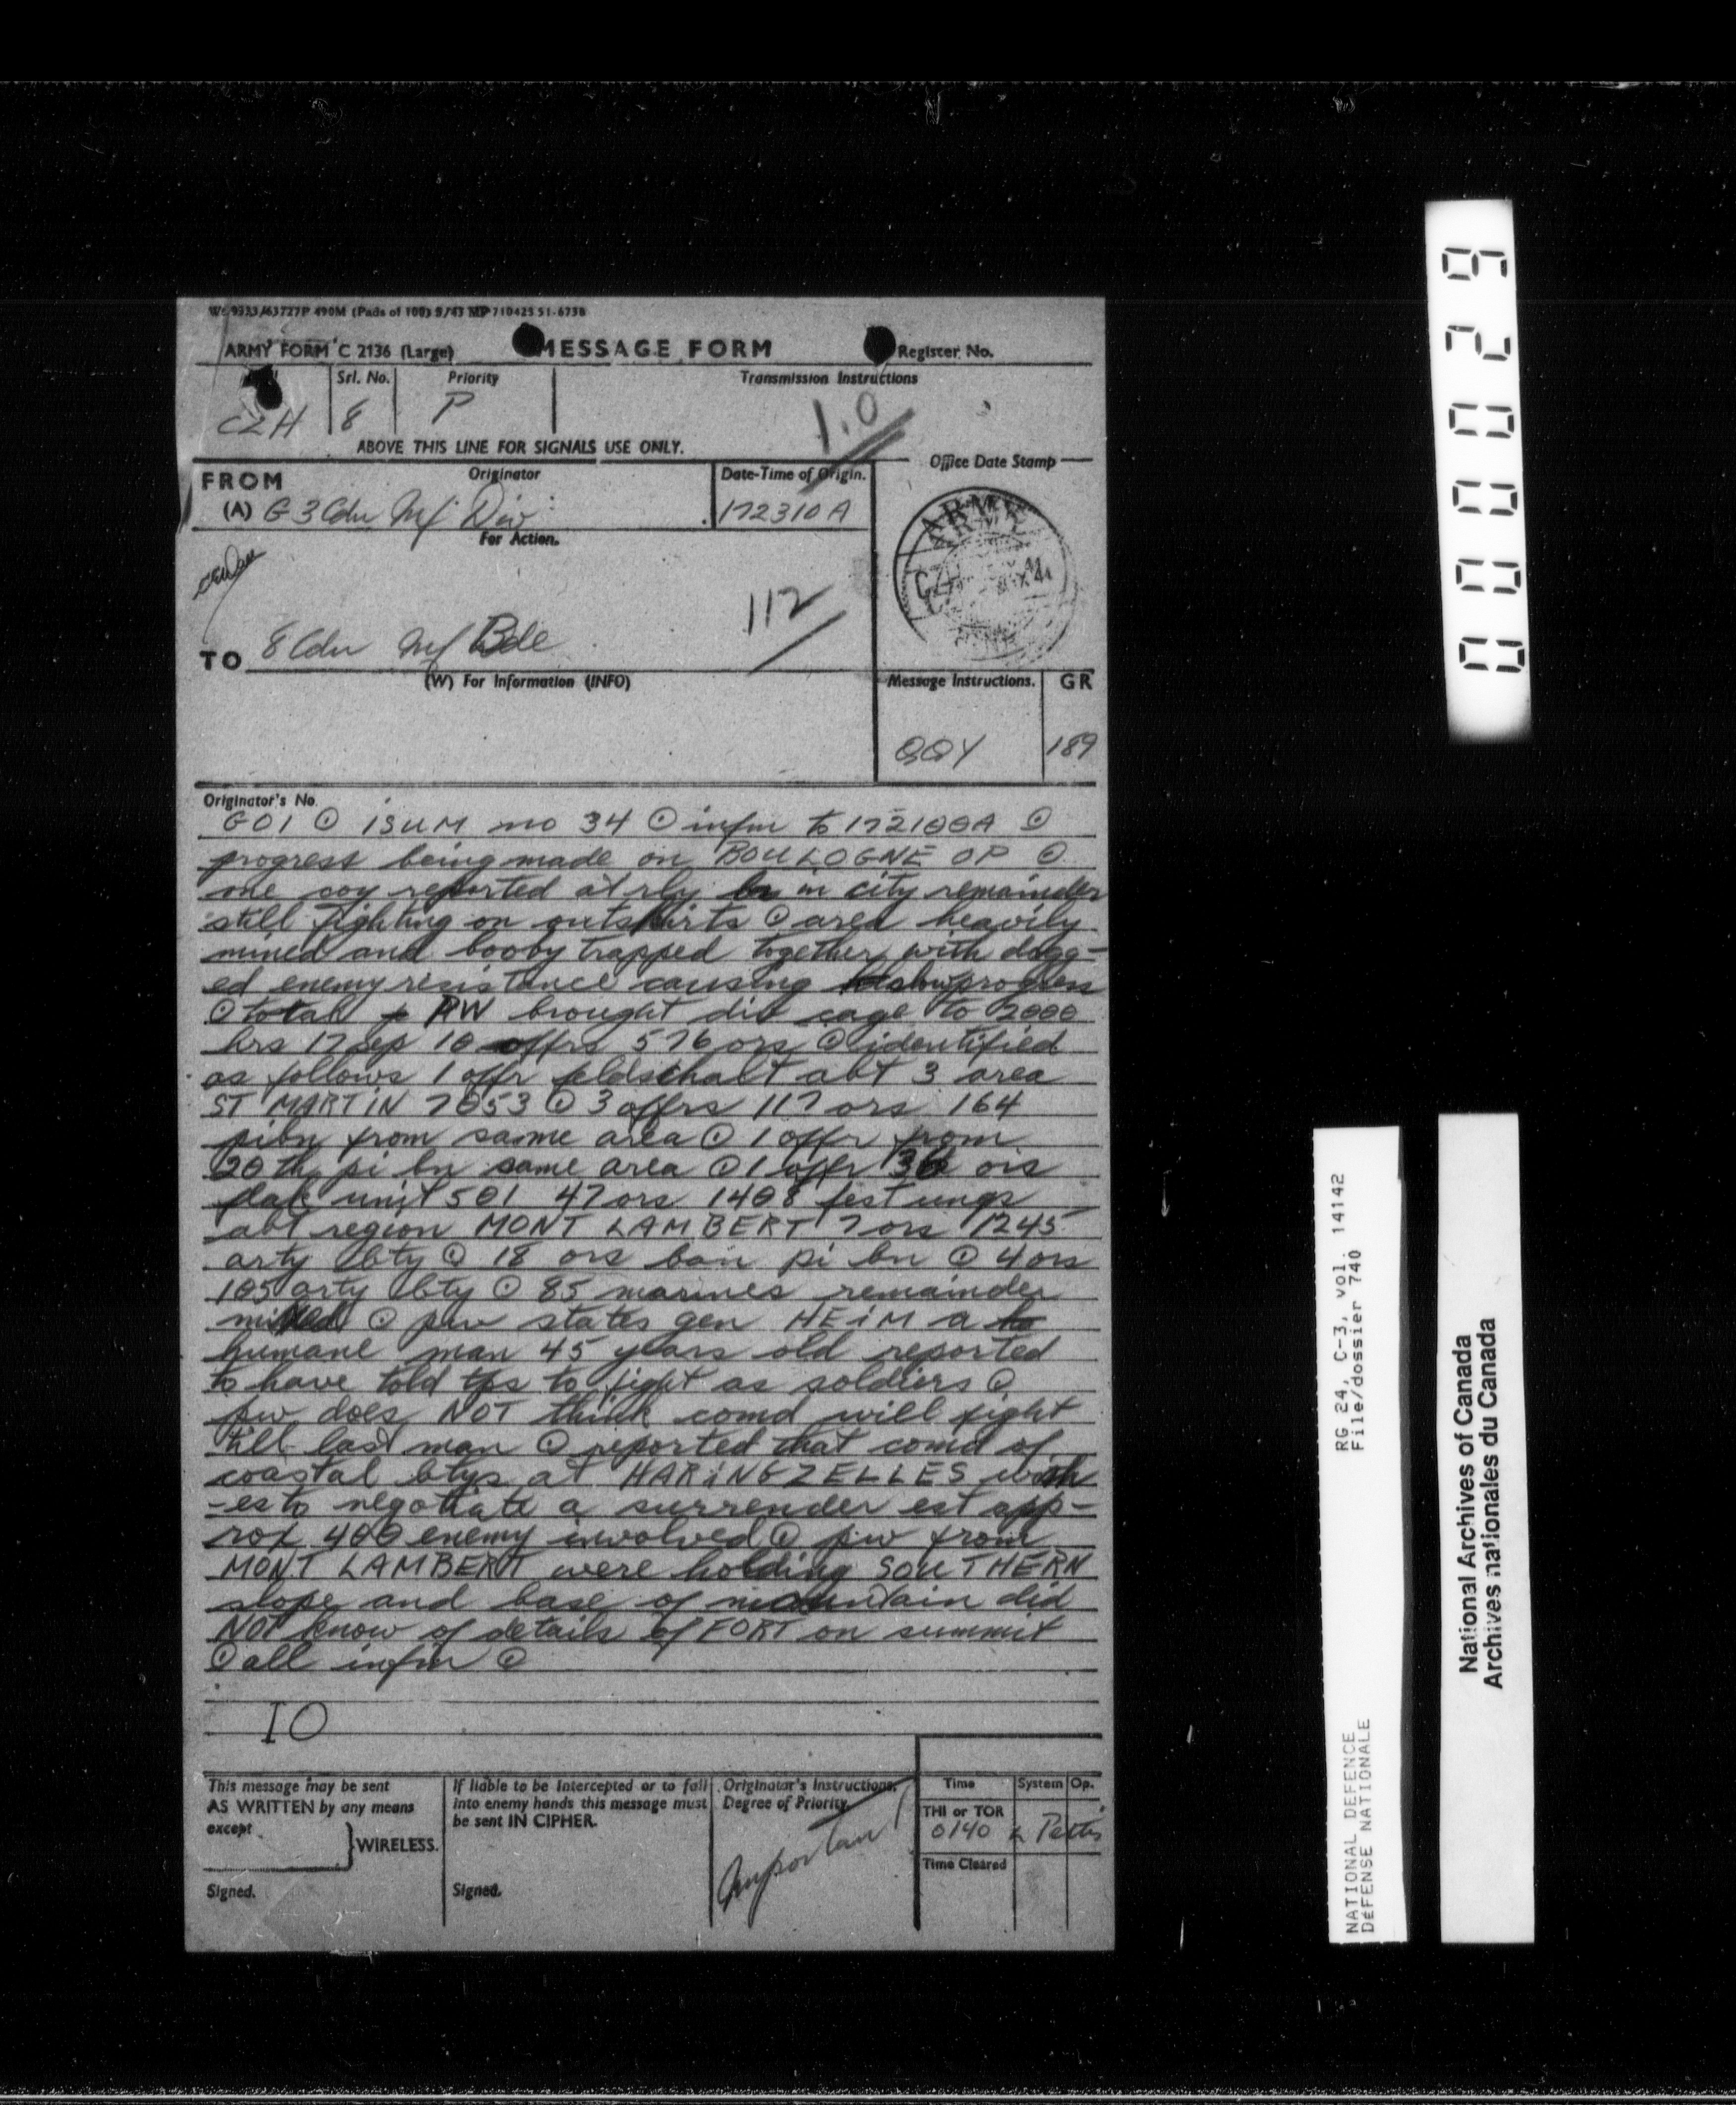 Wt. 9333/63727P 490M (Pads of 100) 5/43 MP 710425 51-6738
ARMY FORM C 2136 (Large)
MESSAGE FORM
Register No.
Srl. No.
Priority
Transmission Instructions
CZH
8
P
1.0
ABOVE THIS LINE FOR SIGNALS USE ONLY.
FROM
Originator
Date-Time of Origin.
Office Date Stamp
(A) G 3 Cdn Inf Div
172310A
For Action.
ARMY
CZH
112
TO 8 Cdn Inf Bde
(W) For Information (INFO)
Message Instructions.
GR
QQY
189
Originator's No.
GO1 ⊙ ISUM no 34 ⊙ infm to 172100A ⊙
progress being made on BOULOGNE OP ⊙
one coy reported at rly in city remainder
still fighting on outskirts ⊙ area heavily
mined and booby trapped together with dogg-
ed enemy resistance causing slow progress
⊙ total PW brought div cage to 2000
hrs 17 sep 10 offrs 576 ors ⊙ identified
as follows 1 offr feldschalt abt 3 area
ST MARTIN 7053 ⊙ 3 offrs 117 ors 164
pibn from same area ⊙ 1 offr from
20th pi bn same area ⊙ 1 offr 30 ors
flak unit 501 47 ors 1408 festungs
abt region MONT LAMBERT 7 ors 1245
arty bty ⊙ 18 ors bau pi bn ⊙ 4 ors
105 arty bty ⊙ 85 marines remainder
mixed ⊙ pw states gen HEIM a
humane man 45 years old reported
to have told tps to fight as soldiers ⊙
pw does NOT think comd will fight
till last man ⊙ reported that comd of
coastal btys at HARINGZELLES wish
-es to negotiate a surrender est app-
rox 400 enemy involved ⊙ pw from
MONT LAMBERT were holding SOUTHERN
slope and base of mountain did
NOT know of details of FORT on summit
⊙ all infm ⊙
IO
This message may be sent
AS WRITTEN by any means
except
WIRELESS.
Signed.
If liable to be intercepted or to fall
into enemy hands this message must
be sent IN CIPHER.
Signed.
Originator's Instructions.
Degree of Priority
Important
Time
System
Op.
THI or TOR
0140
Pettis
Time Cleared
000029
RG 24, C-3, vol. 14142
File/dossier 740
NATIONAL DEFENCE
DÉFENSE NATIONALE
National Archives of Canada
Archives nationales du Canada